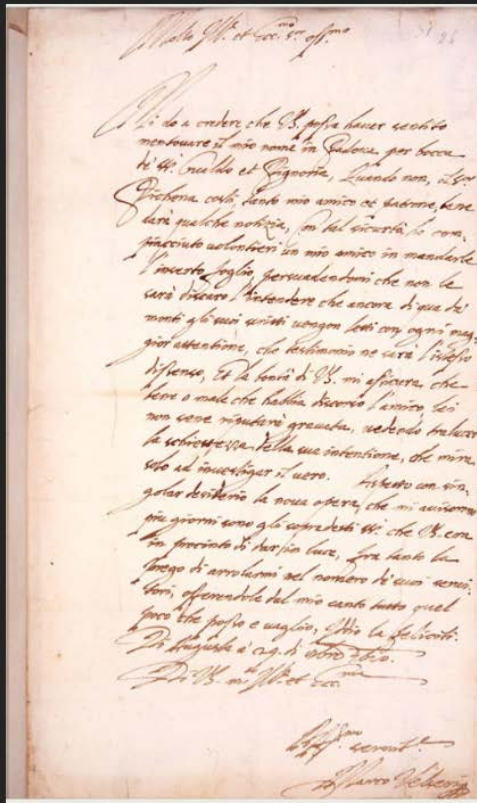 Molto Ill.re et Ecc.mo S.or oss.mo
Mi do a credere che V.S. possa haver sentito
mentovare il mio nome in Padova per bocca
de' SS. Gualdo et Pignoria, Quando non, il S.or
Pichena costì, tanto mio amico et patrone, le ne
darà qualche notizia, Con tal sicurtà ho com,
piaciuto volontieri un mio amico in mandarle
l'inserto foglio, persuadendomi che non le
sarà discaro l'intendere che ancora di qua da'
monti gli suoi scritti vengon letti con ogni mag:
gior attentione, che testimonio ne sarà l'istesso
distenso, Et la bontà di V.S. mi assicura, che
bene o male che habbia discorso l'amico, lei
non sene riputarà gravata, vedendo tralucer
la schiettezza della sua intentione, che mira
solo ad investigar il vero. Aspetto con sin,
golar desiderio la nova opera, che mi avisorno
più giorni sono gli sopradetti SS. che V.S. era
in procinto di dar in luce, fra tanto la
prego di arrolarmi nel numero di suoi servi,
tori, offerendole dal mio canto tutto quel
poco che posso e vaglio, Iddio la feliciti.
Di Augusta a 29. di Ottobre 1610.
Di V.S. m. Ill.re et Ecc.ma
Aff.mo servit.e
Marco Velseri